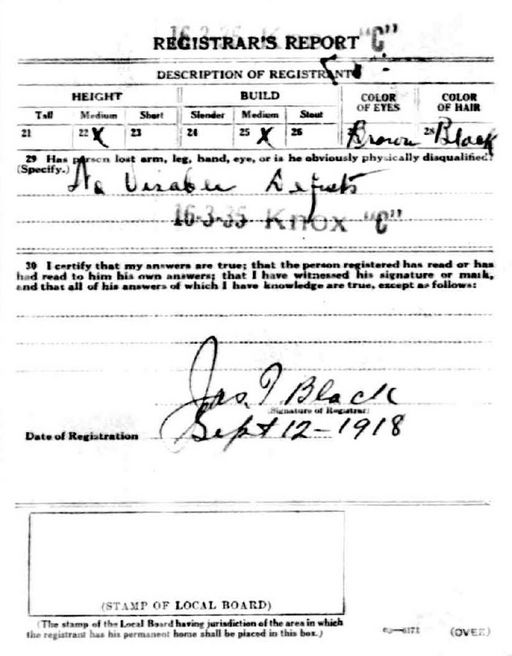 REGISTRAR'S REPORT "C"
DESCRIPTION OF REGISTRANT
HEIGHT BUILD COLOR OF EYES COLOR OF HAIR
Tall Medium Short Slender Medium Stout
21 22 X 23 24 25 X 26 Brown 28 Black
29 Has person lost arm, leg, hand, eye, or is he obviously physically disqualified?
(Specify.) No Visable Defects
16-3-35 Knox "C"
30 I certify that my answers are true; that the person registered has read or has
had read to him his own answers; that I have witnessed his signature or mark,
and that all of his answers of which I have knowledge are true, except as follows:
Jas. T Black
(Signature of Registrar)
Date of Registration Sept 12-1918
(STAMP OF LOCAL BOARD)
(The stamp of the Local Board having jurisdiction of the area in which
the registrant has his permanent home shall be placed in this box.)
(OVER)